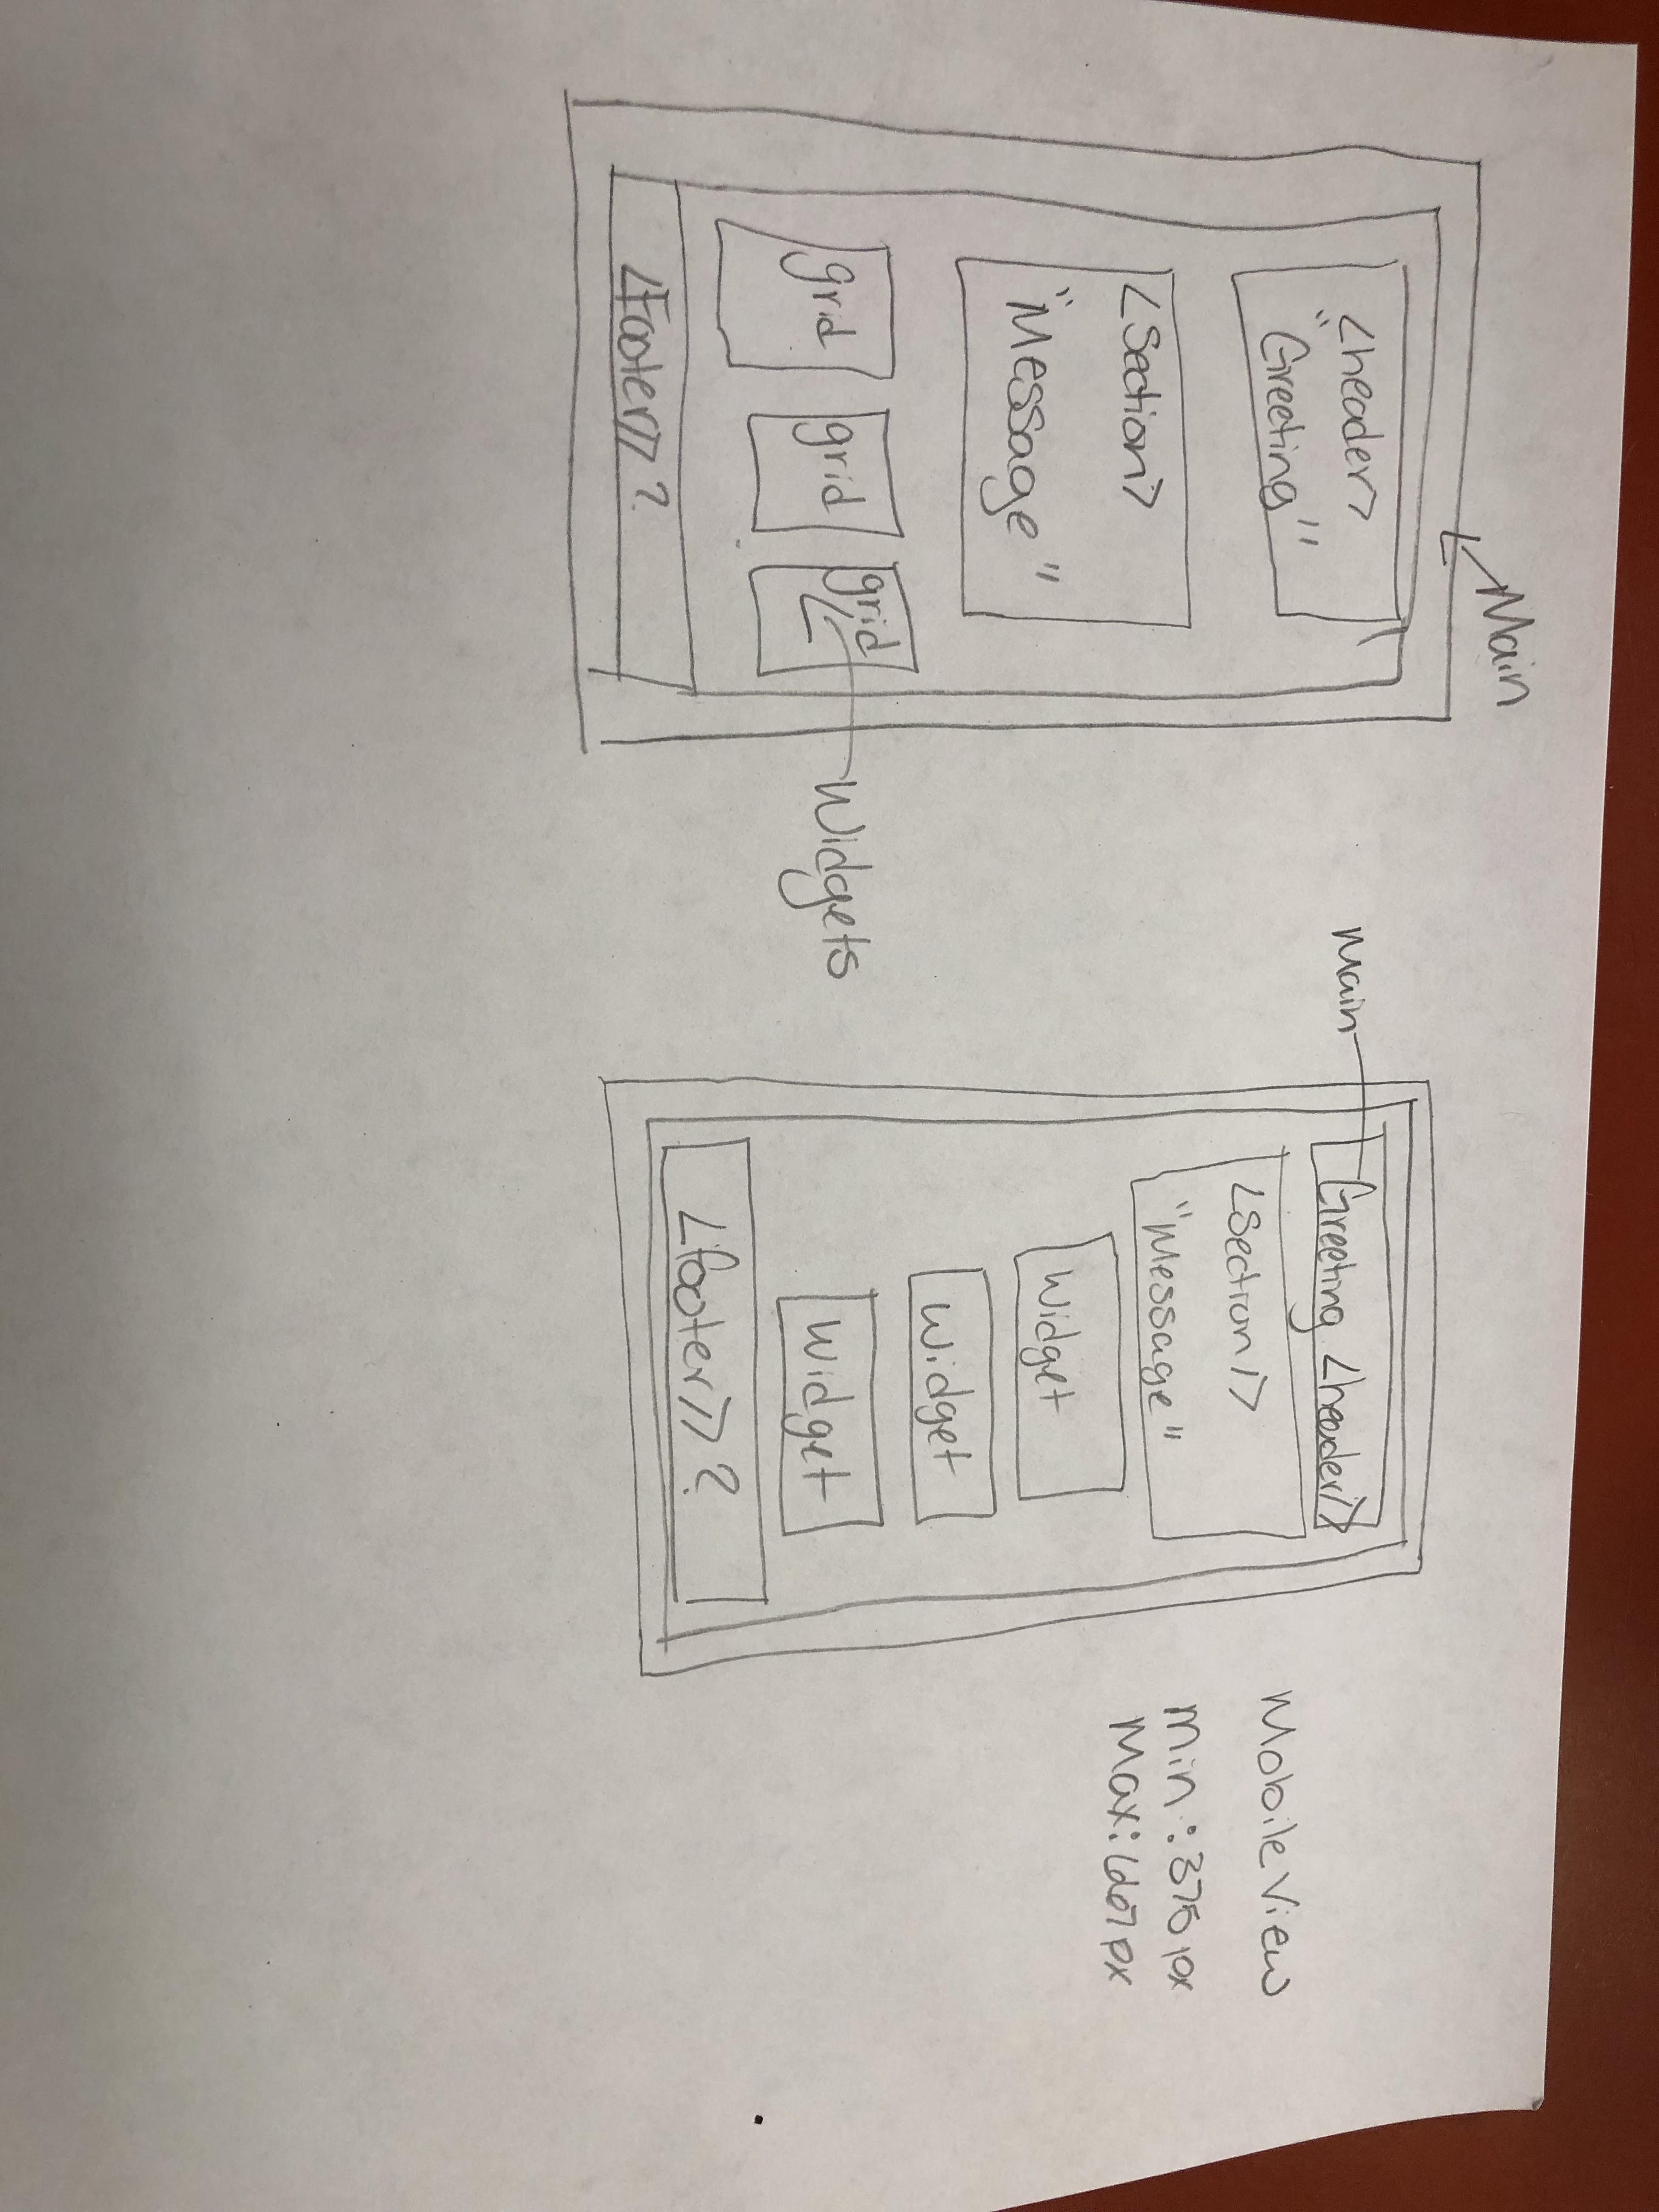 Main
<header>
"Greeting"
<Section>
"Message"
grid
grid
grid
Widgets
<Footer>>?
main
Greeting <header/>
<Section/>
"Message"
Widget
Widget
Widget
<footer>>?
Mobile View
min:375px
Max: